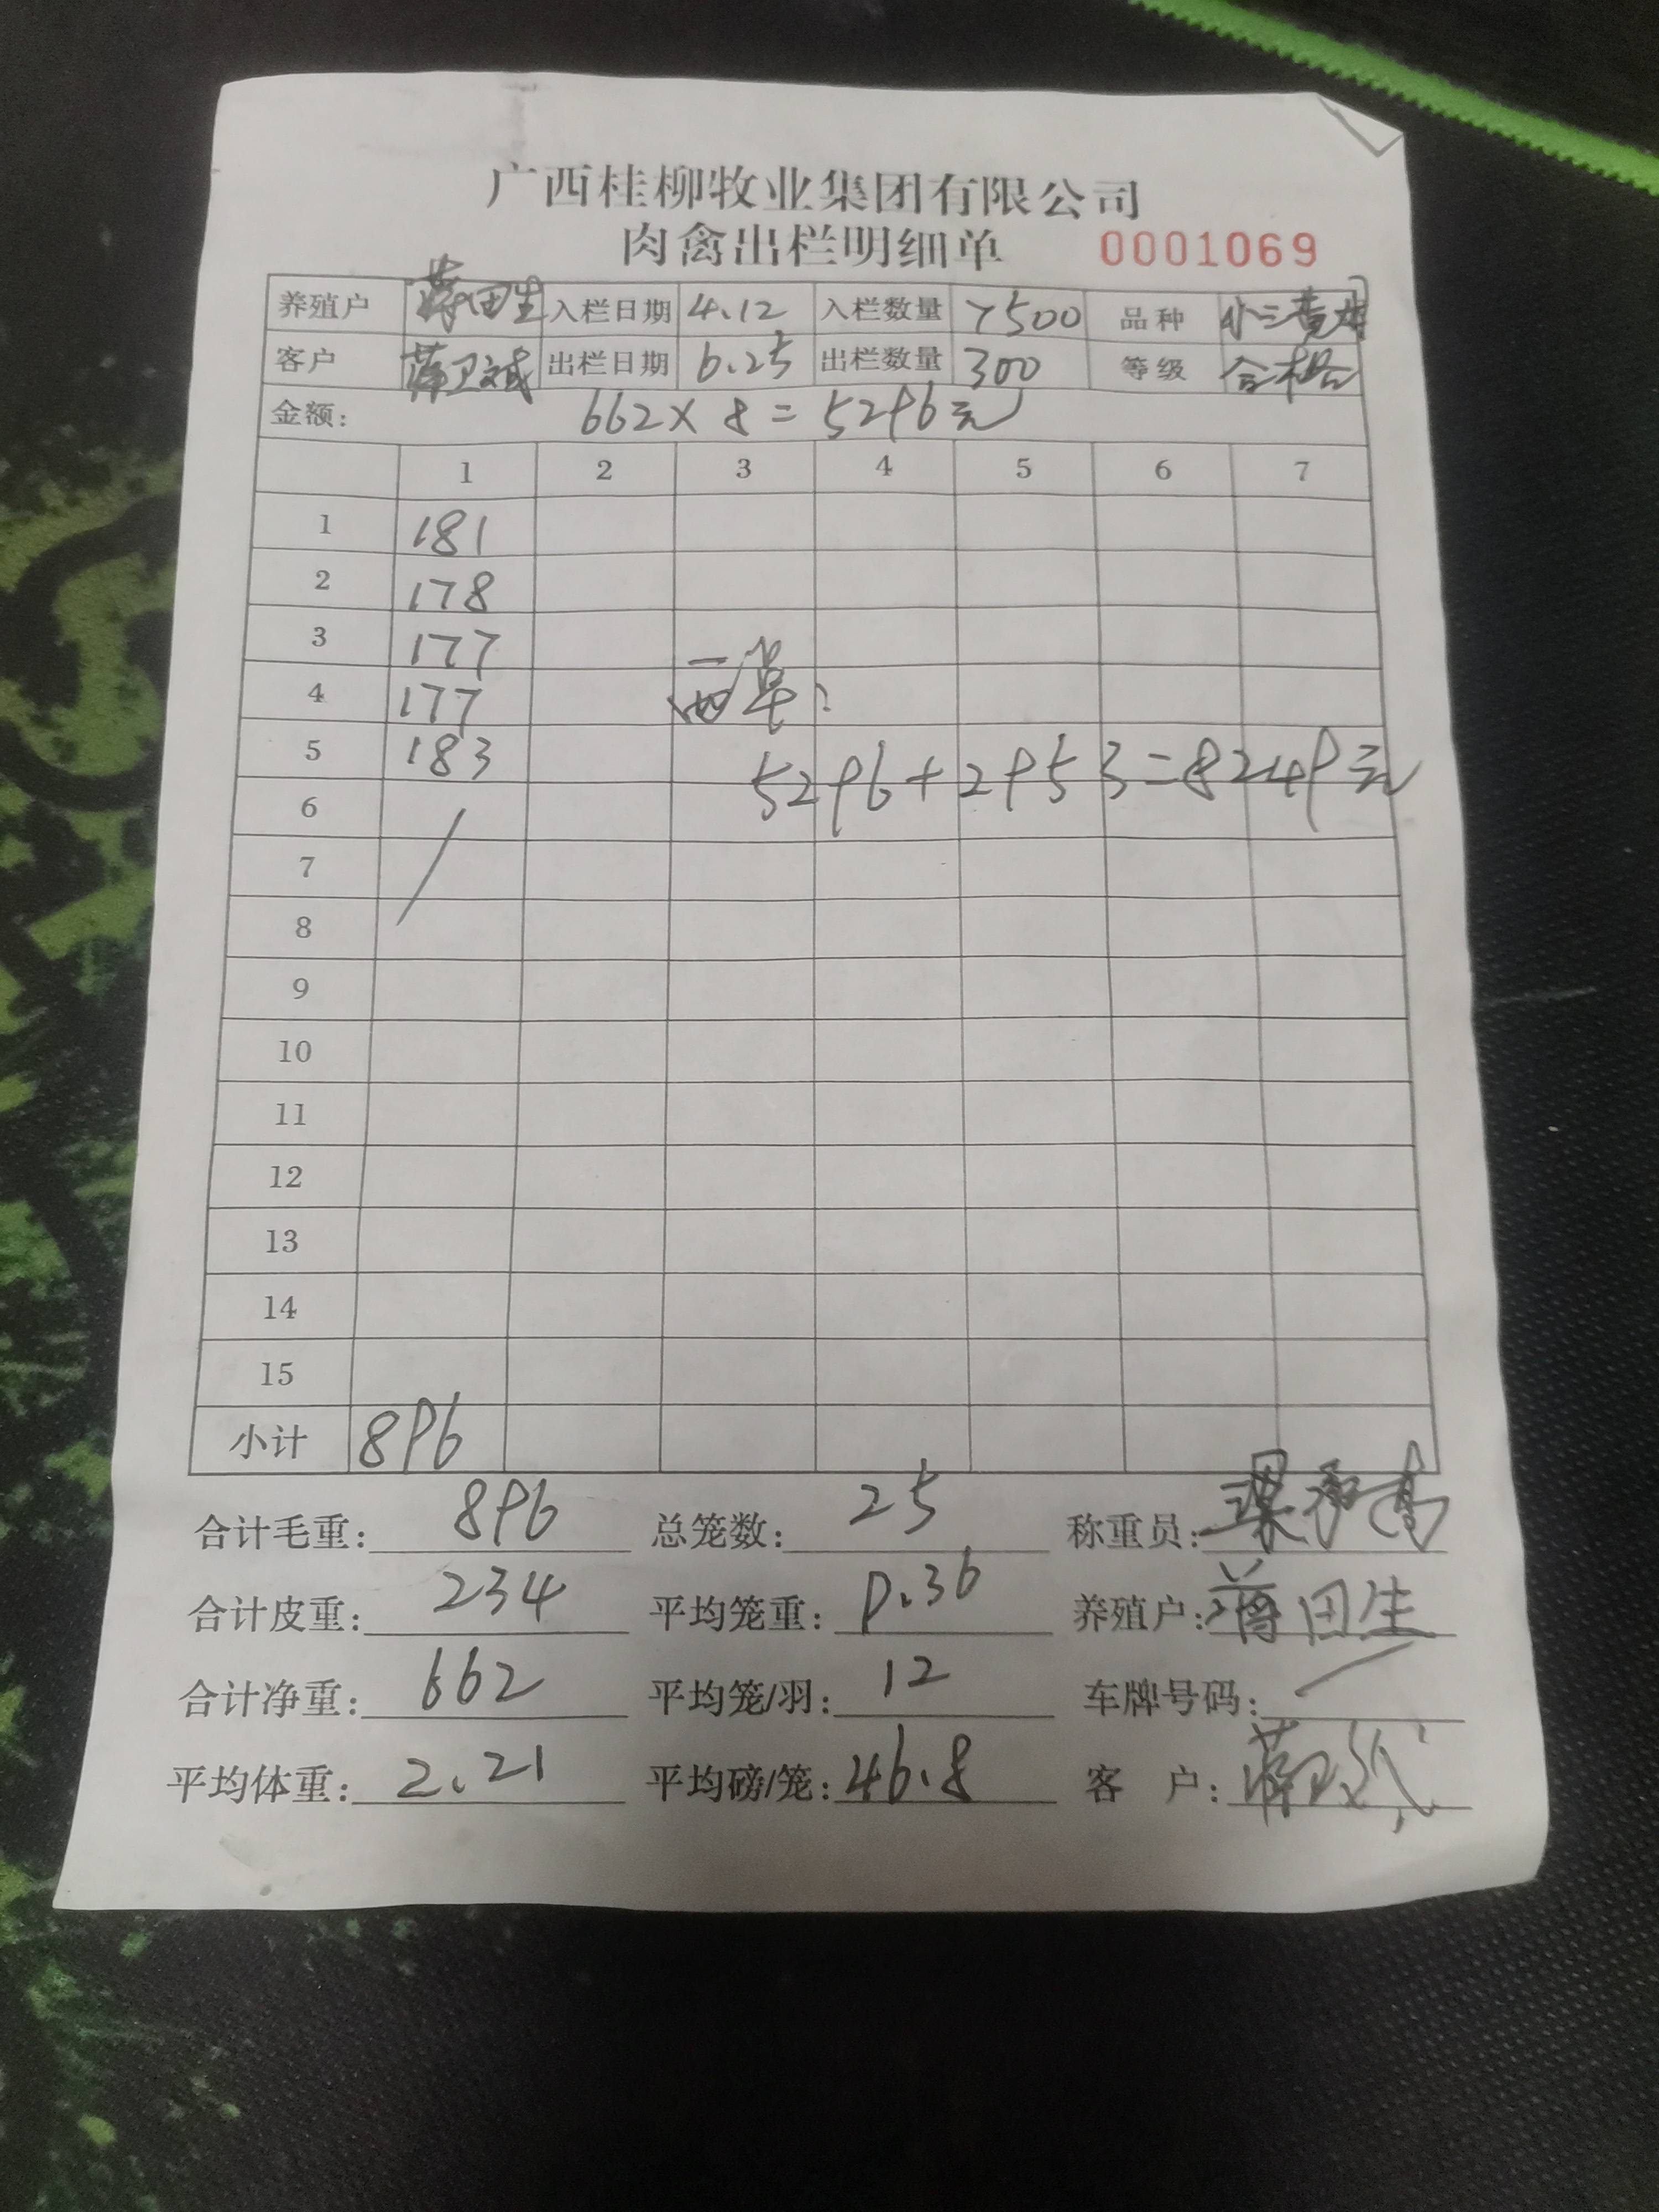 广西桂柳牧业集团有限公司
肉禽出栏明细单 0001069
养殖户 蒋田生 入栏日期 4.12 入栏数量 7500 品种 小三黄
客户 蒋卫 出栏日期 6.25 出栏数量 300 等级 合格
金额: 662×8=5296元
1 2 3 4 5 6 7
1 181
2 178
3 177
4 177 两单:
5 183 5296+2953=8249元
6
7
8
9
10
11
12
13
14
15
小计 896
合计毛重: 896 总笼数: 25 称重员:
合计皮重: 234 平均笼重: 9.36 养殖户: 蒋田生
合计净重: 662 平均笼/羽: 12 车牌号码: /
平均体重: 2.21 平均磅/笼: 46.8 客 户: